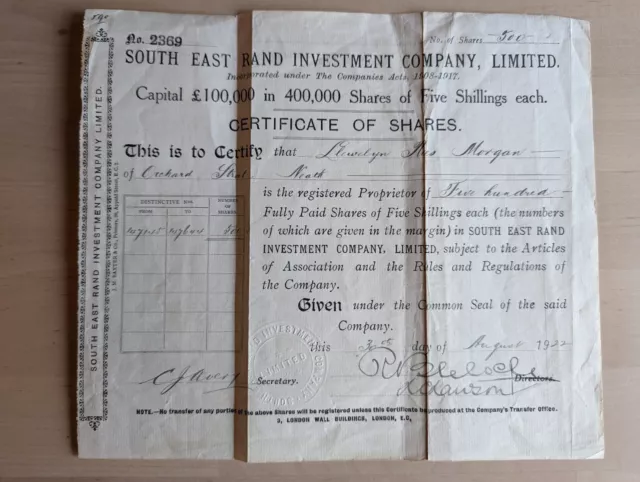 No. 2369
No. of Shares 500
SOUTH EAST RAND INVESTMENT COMPANY, LIMITED.
Incorporated under The Companies Acts, 1908-1917.
Capital £100,000 in 400,000 Shares of Five Shillings each.
CERTIFICATE OF SHARES.
This is to Certify that Llewelyn Rees Morgan
of Orchard Street Neath
is the registered Proprietor of Five hundred
Fully Paid Shares of Five Shillings each (the numbers
of which are given in the margin) in SOUTH EAST RAND
INVESTMENT COMPANY, LIMITED, subject to the Articles
of Association and the Rules and Regulations of
the Company.
Given under the Common Seal of the said
Company.
this day of August 1922
DISTINCTIVE Nos.
NUMBER OF SHARES
FROM TO
500
Secretary.
Directors.
NOTE.—No transfer of any portion of the above Shares will be registered unless this Certificate be produced at the Company's Transfer Office.
3, LONDON WALL BUILDINGS, LONDON, E.C.
SOUTH EAST RAND INVESTMENT COMPANY, LIMITED.